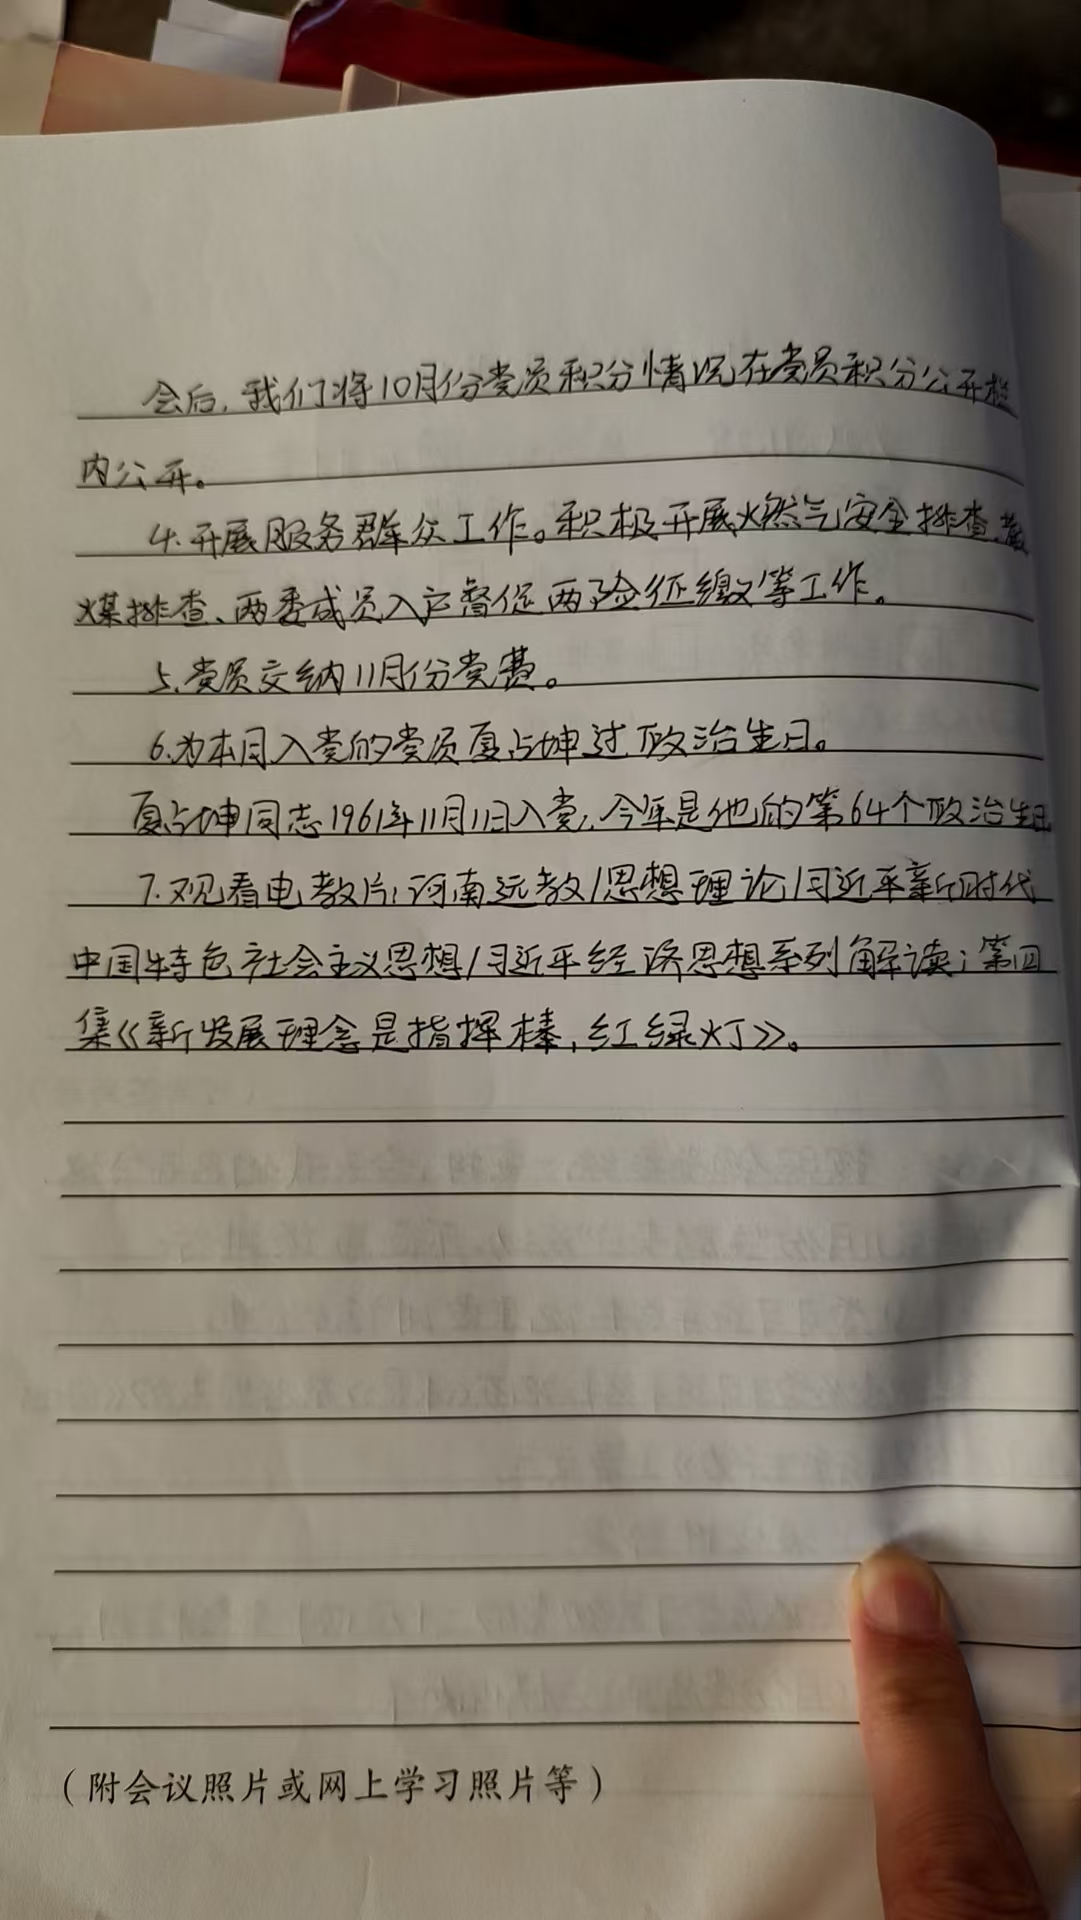 会后,我们将10月份党员积分情况在党员积分公开栏
内公开。
4.开展服务群众工作。积极开展燃气安全排查、散
煤排查、两委成员入户督促两险征缴等工作。
5.党员交纳11月份党费。
6.为本月入党的党员夏占坤过政治生日。
夏占坤同志1961年11月1日入党,今年是他的第64个政治生日
7.观看电教片:河南远教/思想理论/习近平新时代
中国特色社会主义思想/习近平经济思想系列解读;第四
集《新发展理念是指挥棒,红绿灯》。
(附会议照片或网上学习照片等)